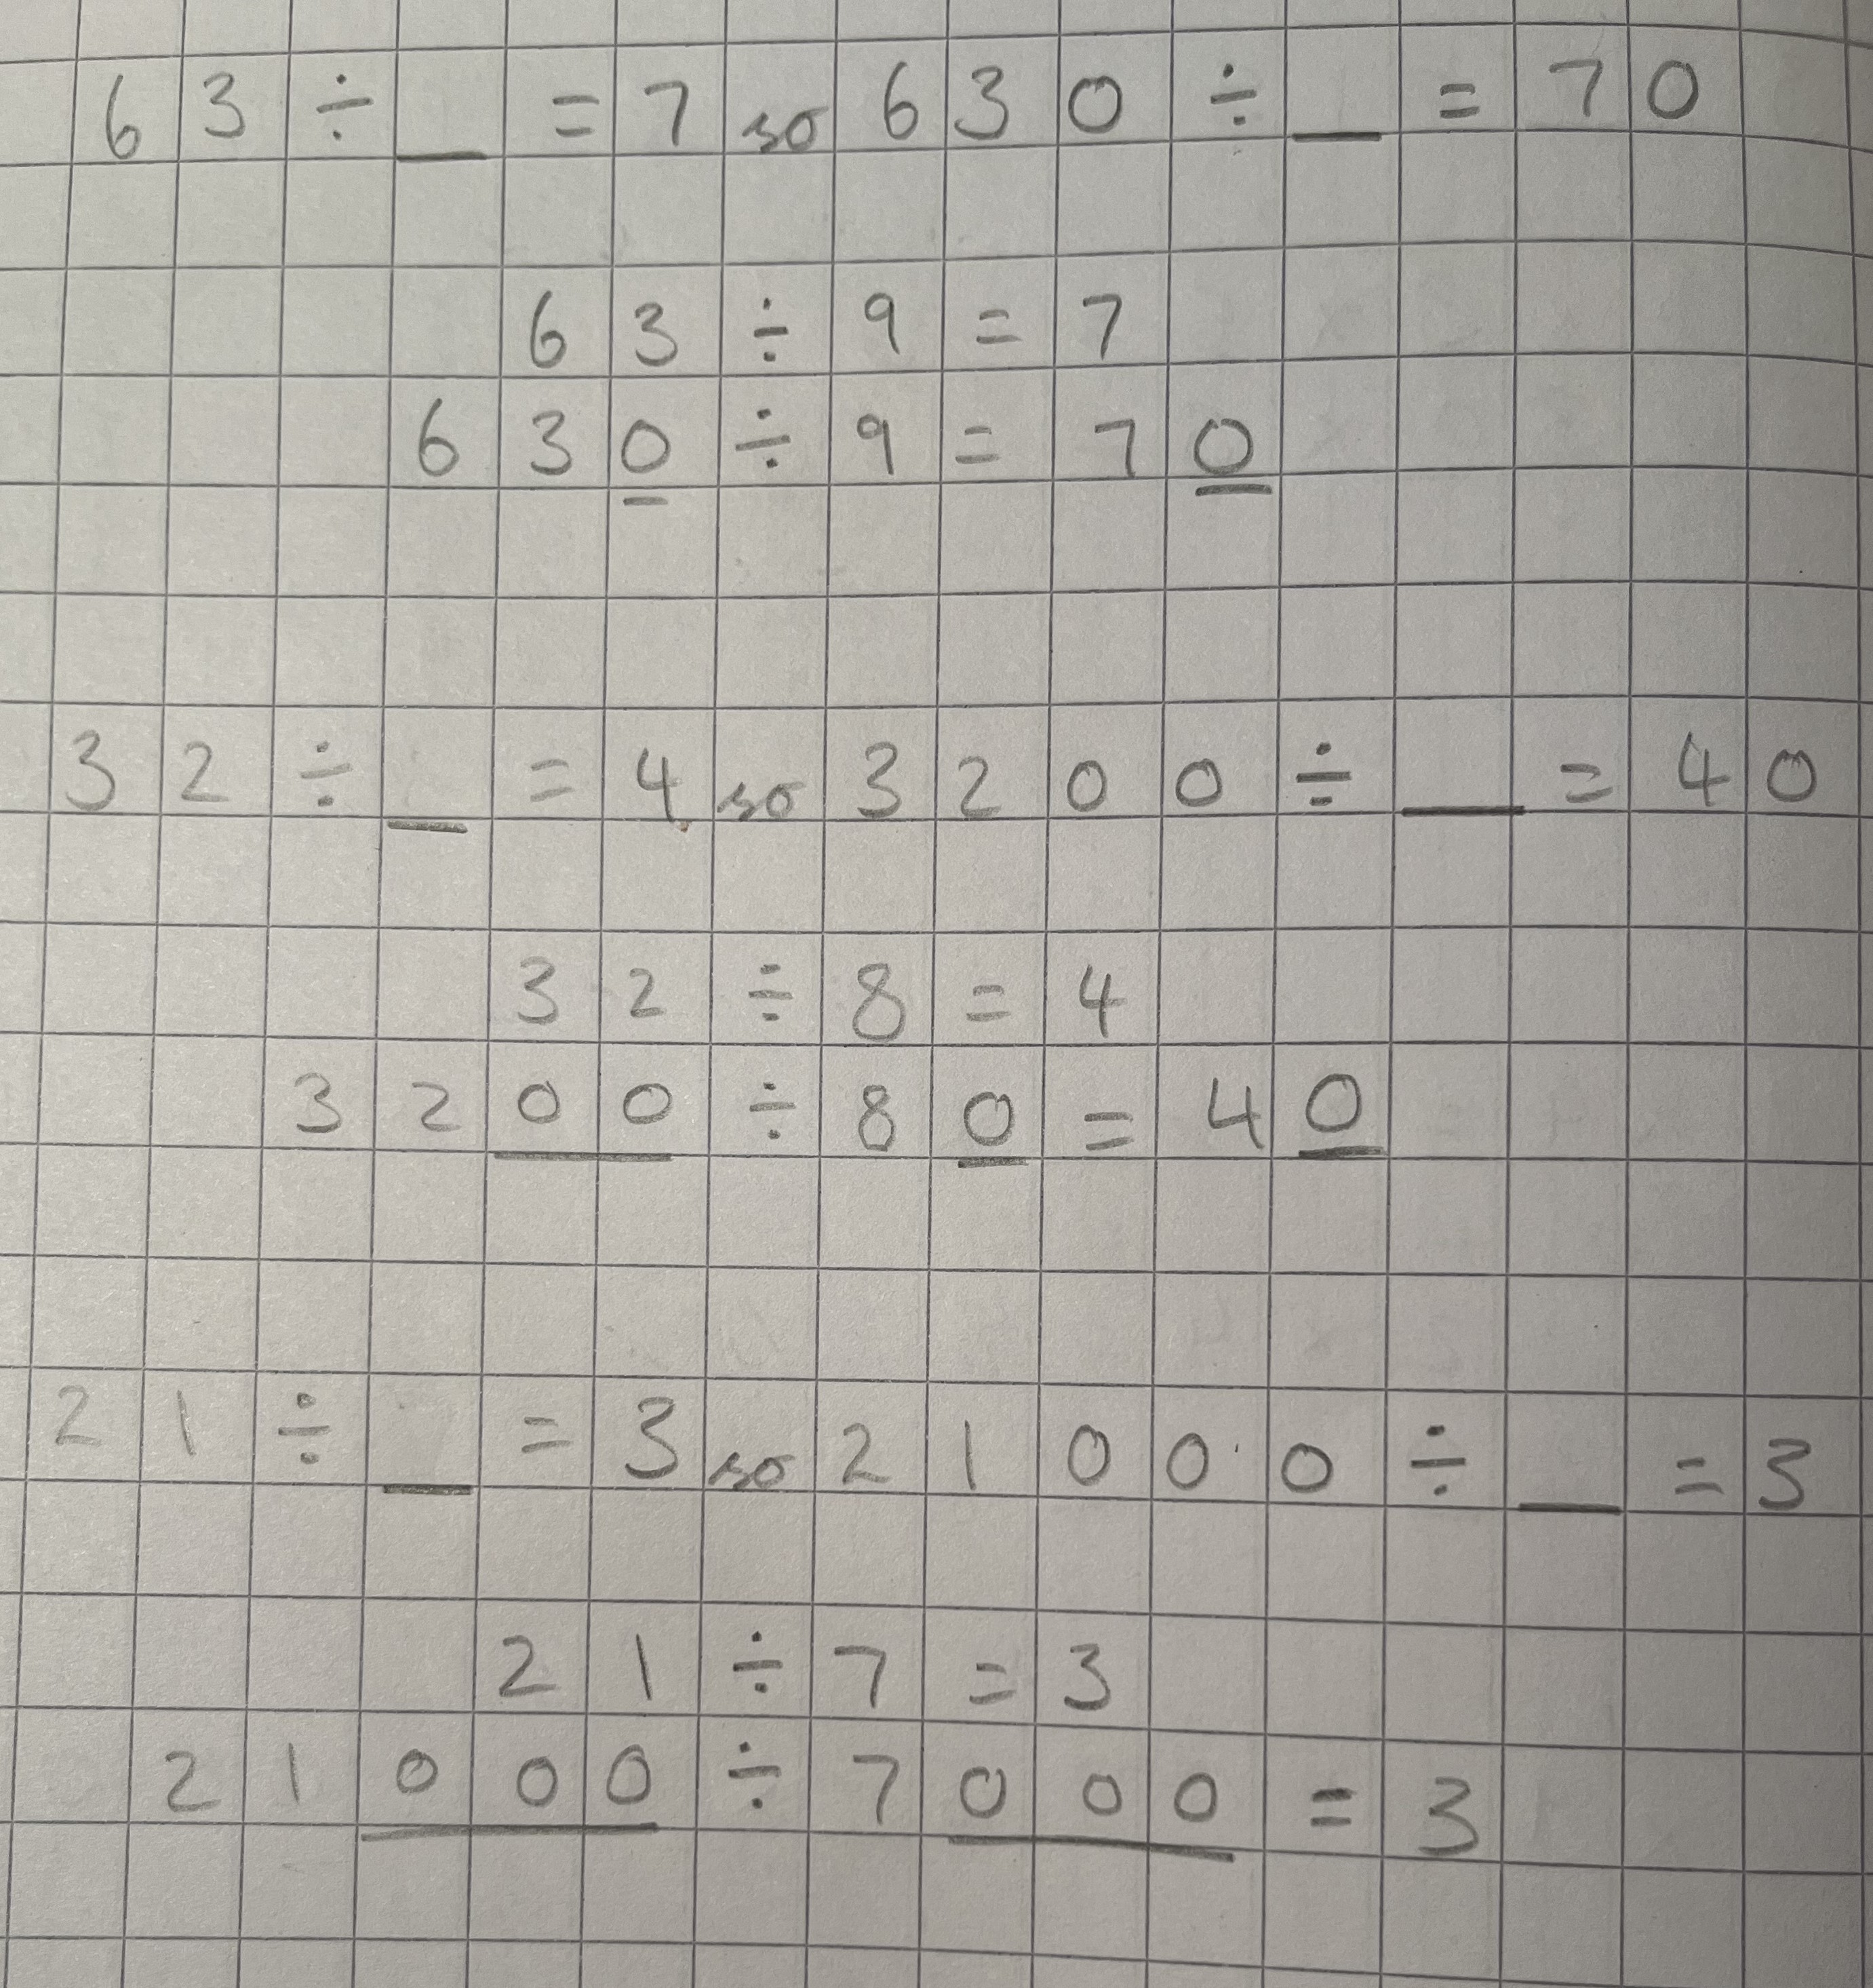 63 ÷ _ = 7 so 630 ÷ _ = 70
63 ÷ 9 = 7
630 ÷ 9 = 70
32 ÷ _ = 4 so 3200 ÷ _ = 40
32 ÷ 8 = 4
3200 ÷ 80 = 40
21 ÷ _ = 3 so 21000 ÷ _ = 3
21 ÷ 7 = 3
21000 ÷ 7000 = 3